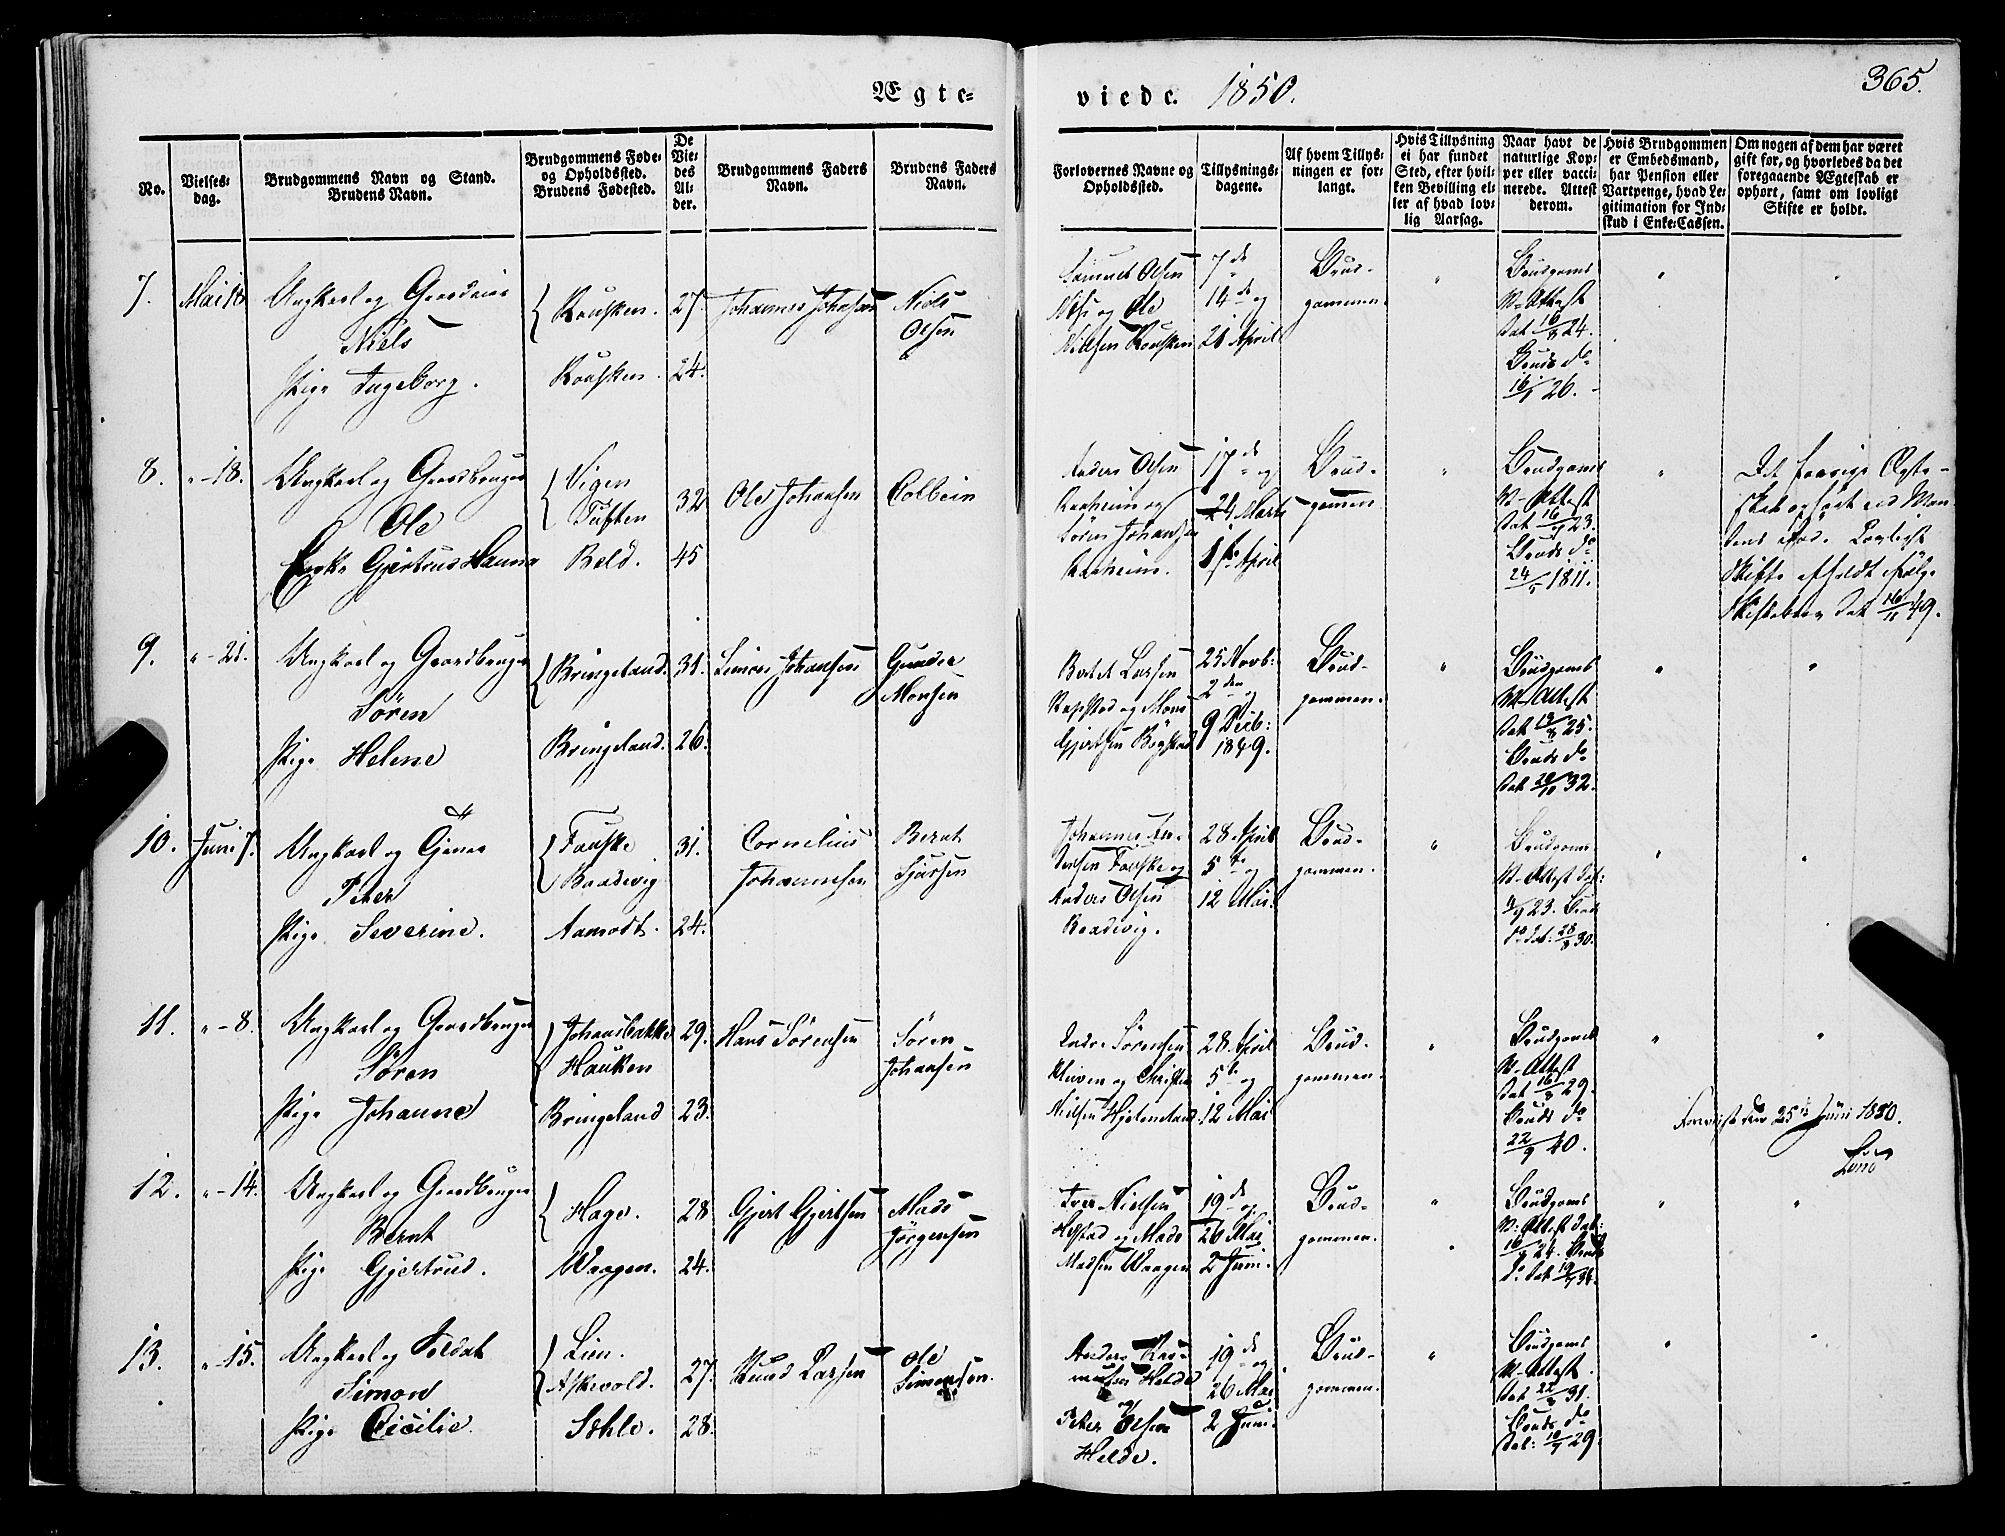 Ægte=
viede. 1850.
365.
No.
Vielses-
dag.
Brudgommens Navn og Stand.
Brudens Navn.
Brudgommens Føde-
og Opholdssted.
Brudens Fødested.
De
Vie-
des
Al-
der.
Brudgommens Faders
Navn.
Brudens Faders
Navn.
Forlovernes Navne og
Opholdssted.
Tillysnings-
dagene.
Af hvem Tillys-
ningen er for-
langt.
Hvis Tillysning
ei har fundet
Sted, efter hvil-
ken Bevilling el-
ler af hvad lov-
lig Aarsag.
Naar havt de
naturlige Kop-
per eller vacci-
nerede. Attest
derom.
Hvis Brudgommen
er Embedsmand,
har Pension eller
Vartpenge, hvad Le-
gitimation for Ind-
skud i Enke-Cassen.
Om nogen af dem har været
gift før, og hvorledes da det
foregaaende Ægteskab er
ophørt, samt om lovligt
Skifte er holdt.
7.
Ungkarl og
Niels
Pige Ingeborg.
Rousken. 27. Johannes Johansen Niels
Olsen
Rousken. 24.
Samuel Olsen
og Ole
Nielsen Rousken
7de
14de og
21 April
Brud-
gommen.
Brudgoms
V-Attest
dat 16/8 24.
Bruds do
26.
8. "-18.
Ungkarl og Gaardbruger
Ole
Enke Gjertrud Hanna
Vigen
Tuften 32 Ole Johansen Colbein
Beld. 45
Anders Olsen
Aaheim og
Søren Johansen
Aaheim.
17de og
24 Marts
1ste April
Brud-
gommen
Brudgoms
V-Attest
dat 16/9 23.
Bruds do
24/5 1811.
Det forrige Ægte-
skab ophørt ved Man-
dens Død. Lovligt
Skifte afholdt ifølge
Skiftebrev dat 49.
9. "-21.
Ungkarl og Gaardbruger
Søren
Pige Helene
Bringeland. 31. Simon Johansen Gunder
Monsen
Bringeland. 26.
Larsen
og Mons
Gjertsen Bøgstad
25 Novb:
2den og
9 Decb:
1849.
Brud-
gommen.
Brudgoms
V-Attest
dat 19/8 25.
Bruds do
dat 32.
10. Juni 7.
Ungkarl og
Peter
Pige Severine.
Fauske
Baadevig 31. Cornelius
Johannesen Bernt
Sjursen
Aamodt. 24.
Johannes An-
dersen Fauske og
Anders Olsen
Baadevig.
28 April
5te og
12 Mai.
Brud-
gommen.
Brudgoms
V-Attest dat:
23. Bruds
do dat: 28/8 30.
11. "-8.
Ungkarl og Gaardbruger
Søren
Pige Johanne
Johansbakke
Hauken 29. Hans Sørensen Søren
Johansen
Bringeland 23.
Sørensen
Kleven og Christen
Nielsen Hjelmeland
28 April
5te og
12 Mai
Brud-
gommen.
Brudgoms
V-Attest
dat 16/8 29.
Bruds do
22/9 40.
Foreviist den 25 Juni 1850.
12. "-14.
Ungkarl og Gaardbruger
Bernt
Pige Gjertrud.
Hage. 28 Gjert Gjertsen Mads
Jørgensen
Waagen. 24.
Iver Nielsen
og Mads
Madsen Waagen
19de og
26 Mai
2 Juni.
Brud-
gommen.
Brudgoms
V-Attest dat:
24. Bruds
do dat
13. "-15.
Ungkarl og Soldat
Simon
Pige Cicilie.
Lien.
Askevold. 27. Knud Larsen Ole
Simonsen.
Sæhle. 28.
Anders Ras-
musen Helde
og
Peter Olsen
Helde.
19de og
26 Mai
2 Juni.
Brud-
gommen.
Brudgoms
V-Attest
dat 22/8 31.
Bruds do
dat: 29.